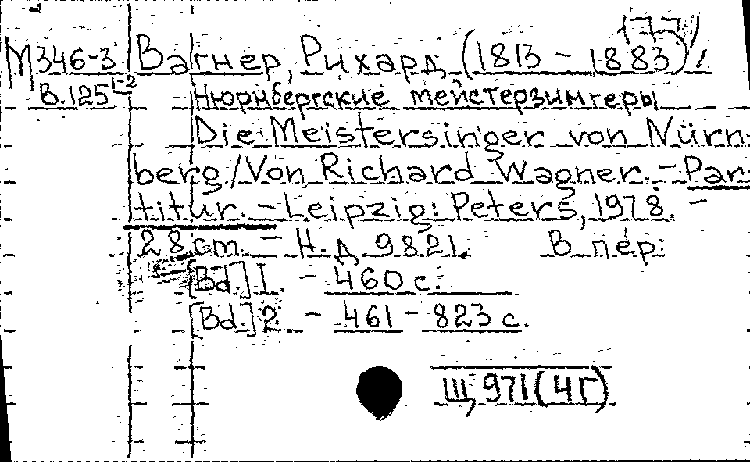 (77)
М346-3 Вагнер, Рихард (1813 – 1883)
В.125 1-2 Нюрнбергские мейстерзингеры
Die Meistersinger von Nürn-
berg / Von Richard Wagner. – Par-
titur. – Leipzig: Peters, 1978. –
28 cm. – Н.д. 9821. В пер.
[Bd.] I. – 460 с.
[Bd.] 2. – 461 – 823 с.
Щ 971(4Г)